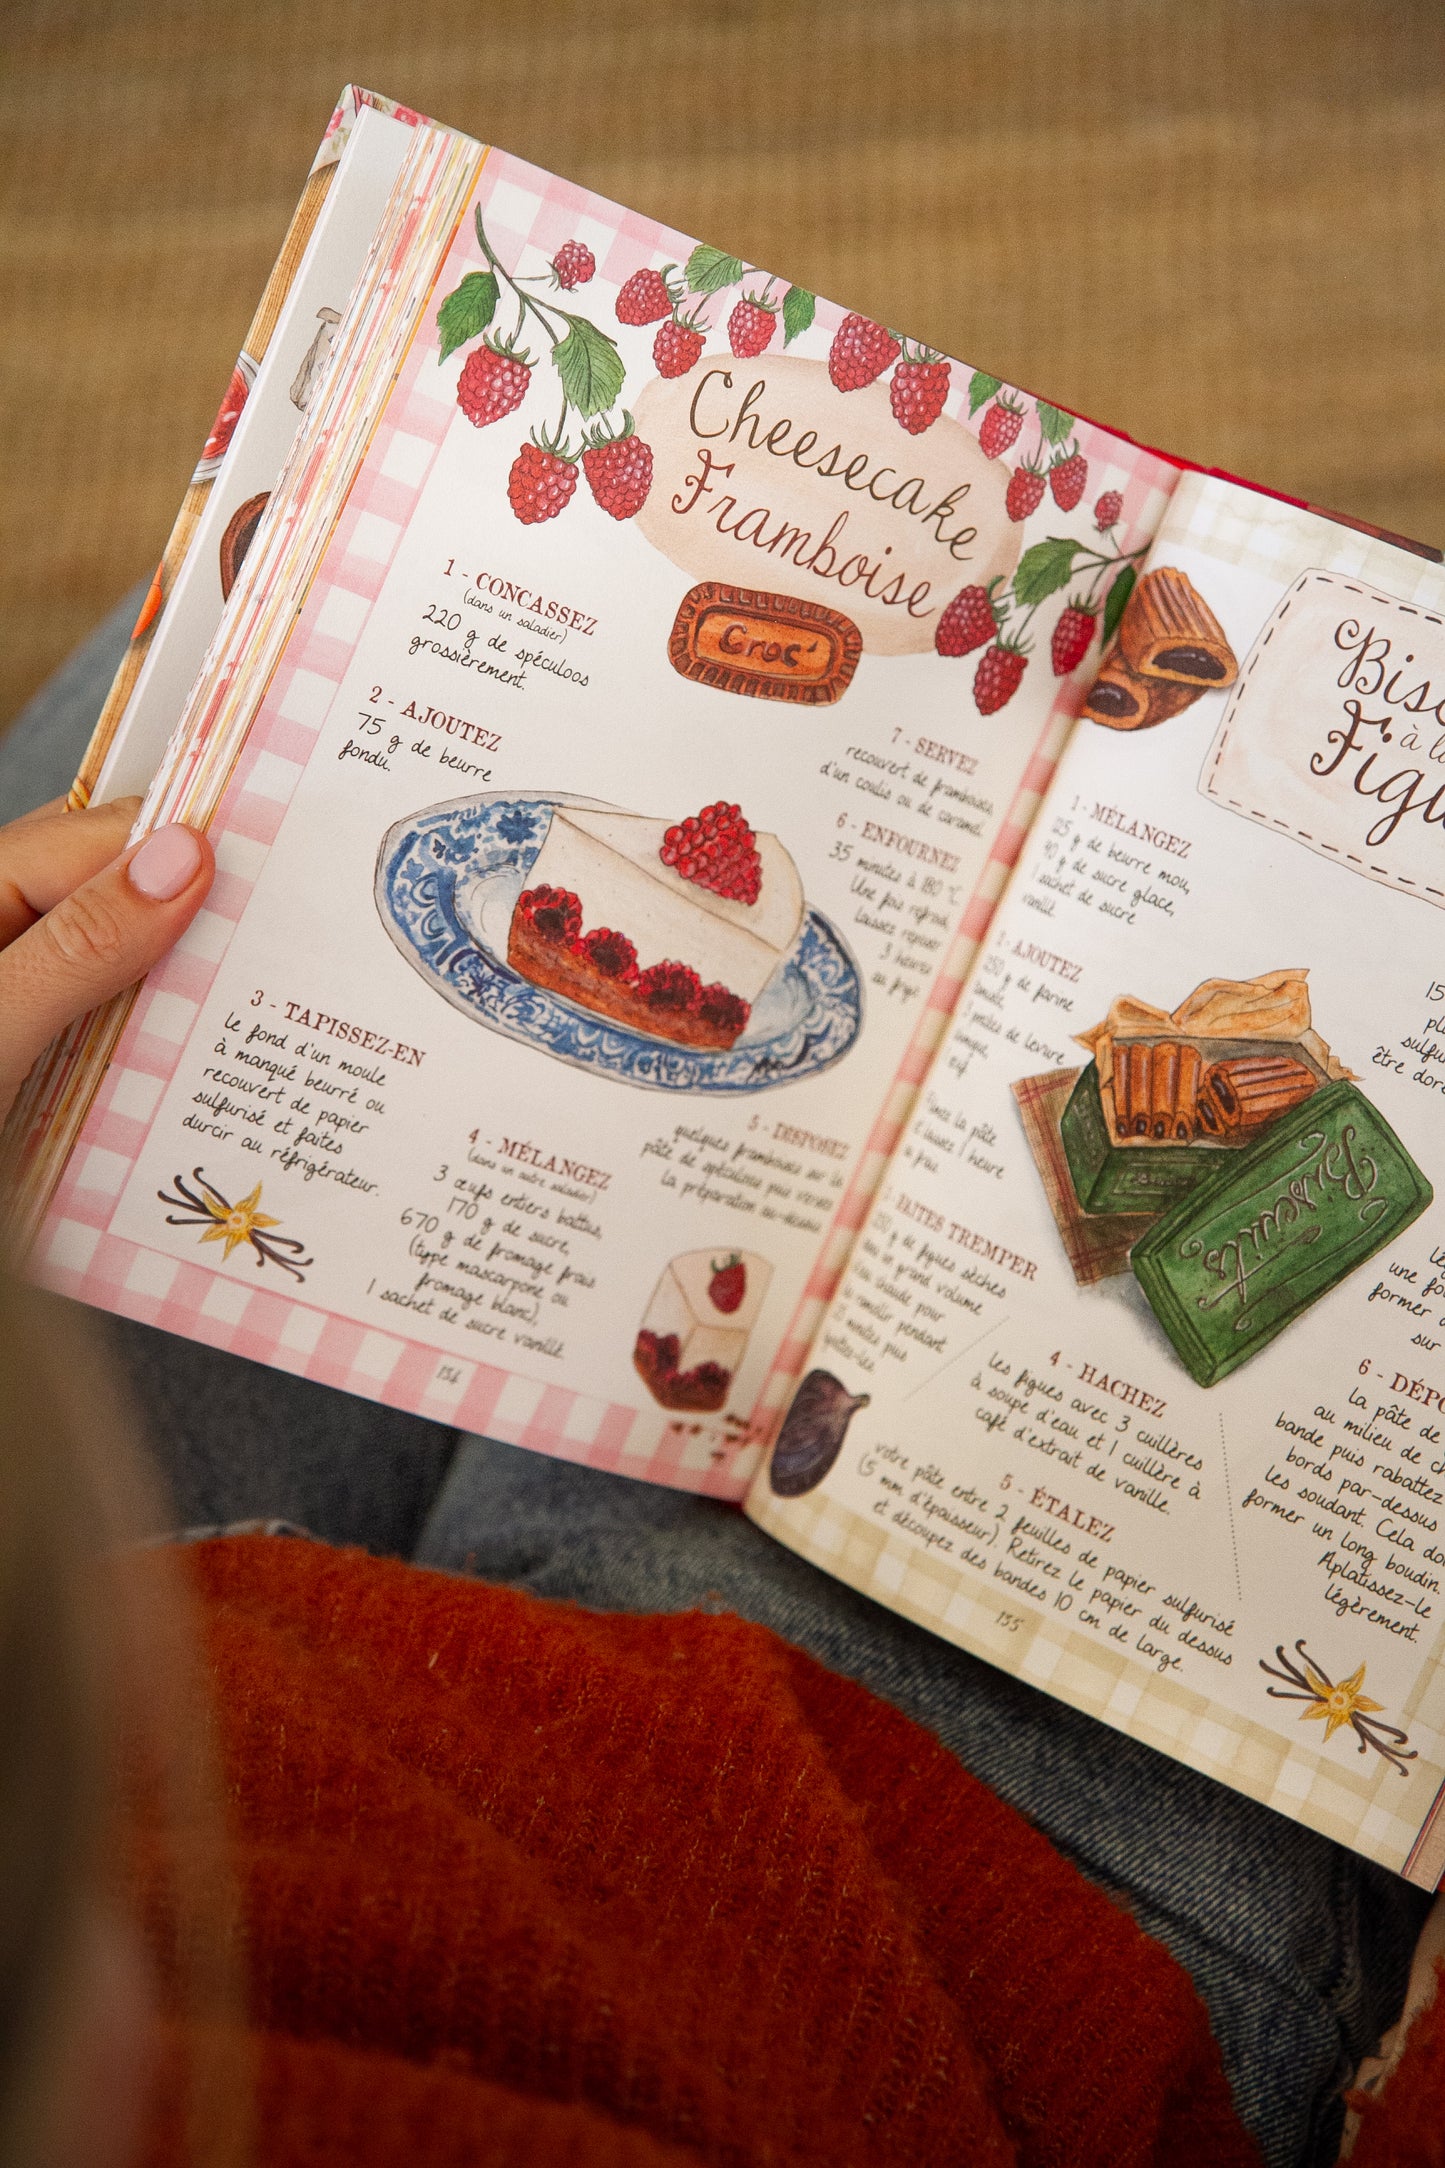 Cheesecake
Framboise
Croc'
1 - CONCASSEZ
(dans un saladier)
220 g de spéculoos
grossièrement.
2 - AJOUTEZ
75 g de beurre
fondu.
3 - TAPISSEZ-EN
le fond d'un moule
à manqué beurré ou
recouvert de papier
sulfurisé et faites
durcir au réfrigérateur.
4 - MÉLANGEZ
(dans un autre saladier)
3 œufs entiers battus,
170 g de sucre,
670 g de fromage frais
(type mascarpone ou
fromage blanc),
1 sachet de sucre vanillé.
5 - DISPOSEZ
quelques framboises sur la
pâte de spéculoos puis versez
la préparation au-dessus.
6 - ENFOURNEZ
35 minutes à 180 °C.
Une fois refroidi,
laissez reposer
3 heures
au frigo.
7 - SERVEZ
recouvert de framboises,
d'un coulis ou de caramel.
134
Bisc
à l
Figu
1 - MÉLANGEZ
125 g de beurre mou,
90 g de sucre glace,
1 sachet de sucre
vanillé.
2 - AJOUTEZ
250 g de farine
levure
la pâte
1 heure
FAITES TREMPER
g de figues sèches
dans un grand volume
d'eau chaude pour
ramollir pendant
minutes puis
égouttez-les.
4 - HACHEZ
les figues avec 3 cuillères
à soupe d'eau et 1 cuillère à
café d'extrait de vanille.
5 - ÉTALEZ
votre pâte entre 2 feuilles de papier sulfurisé
(5 mm d'épaisseur). Retirez le papier du dessus
et découpez des bandes 10 cm de large.
135
Biscuits
15
pl
sulfu
être dor
lé
une fo
former
sur
6 - DÉPO
la pâte de
au milieu de ch
bande puis rabattez
bords par-dessus
les soudant. Cela do
former un long boudin.
Aplatissez-le
légèrement.